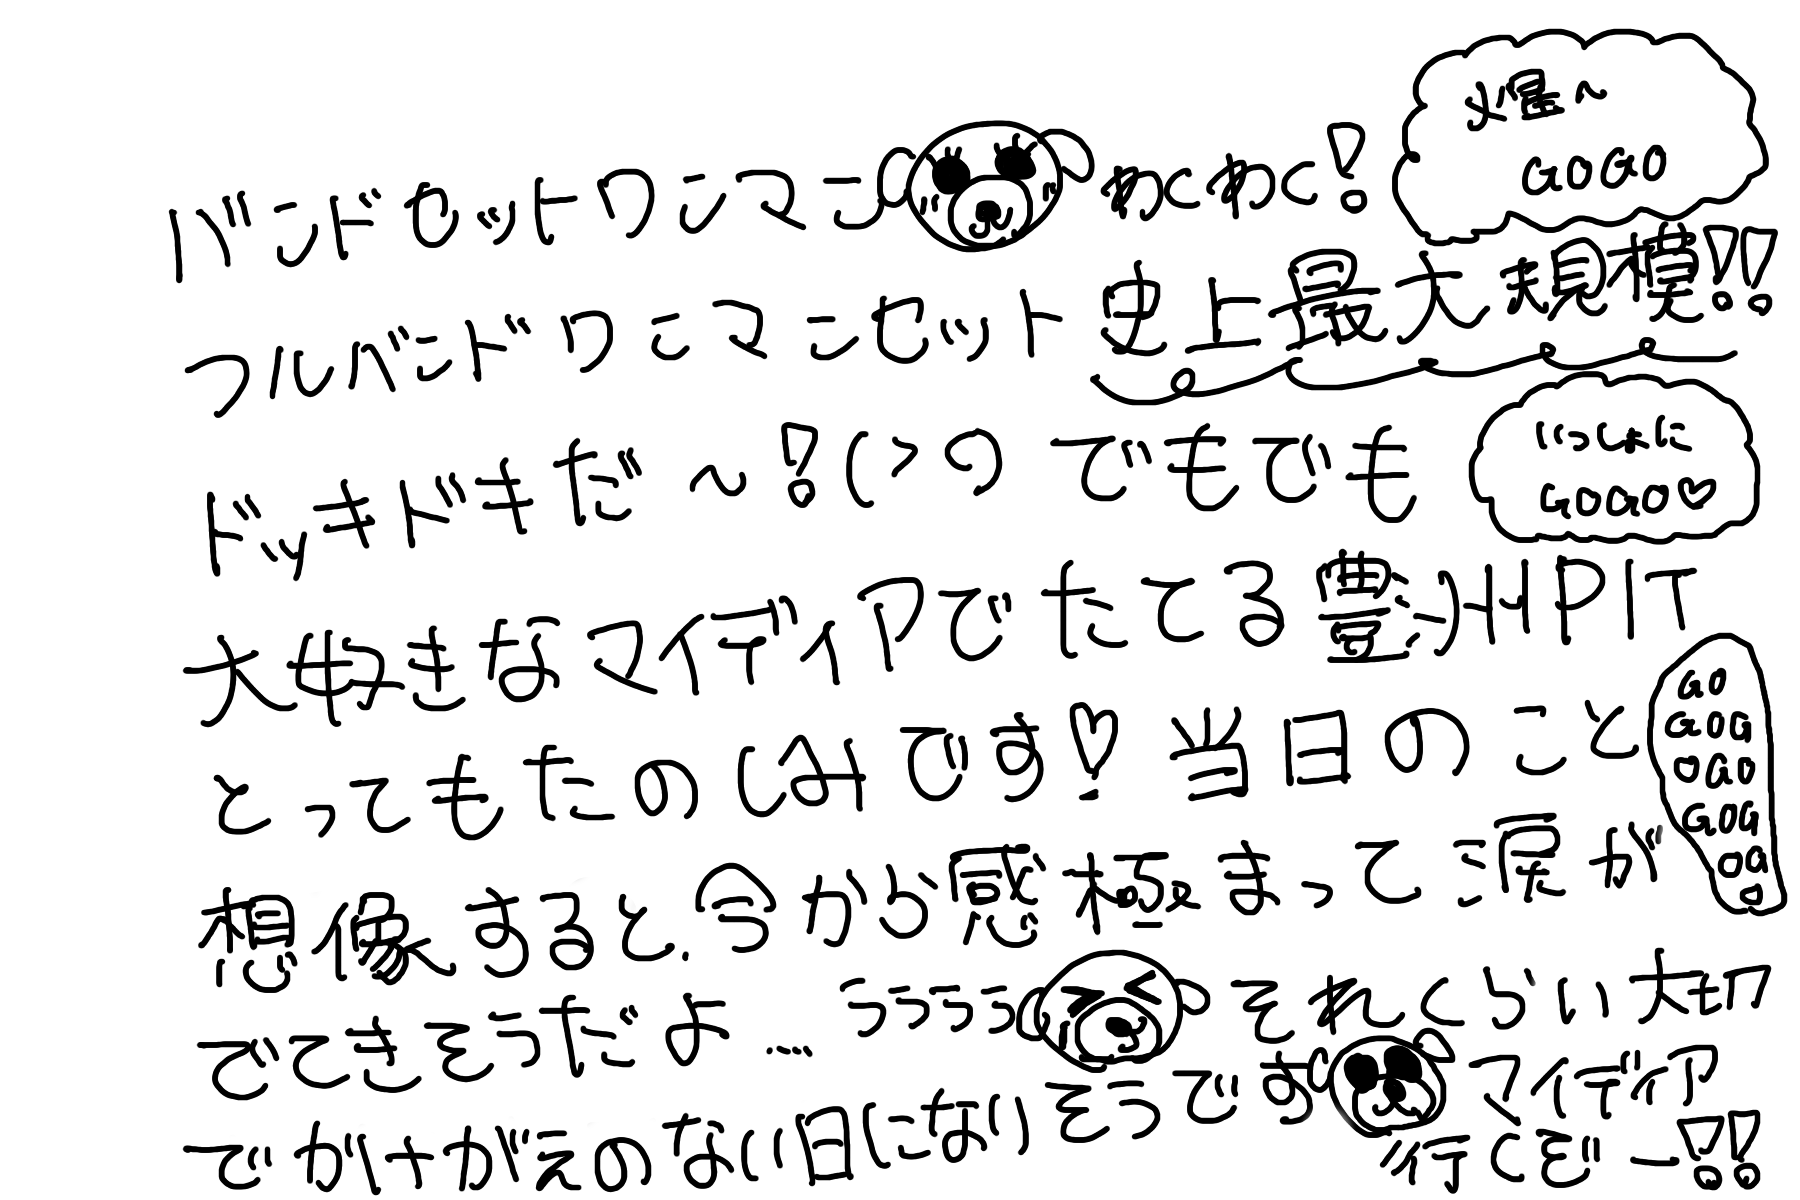 バンドセットワンマン わくわく!
爆〜
GOGO
フルバンドワンマンセット 史上最大規模!!
ドッキドキだ〜!(>の でもでも
いっしょに
GOGO♡
大好きなマイディアでたてる豊洲PIT
とってもたのしみです♡ 当日のこと
GO
GOG
OGO
GOG
OG
O
想像すると、今から感極まって涙が
でてきそうだよ… うううう それくらい大切
でかけがえのない日になりそうです マイディア
行くぞー!!